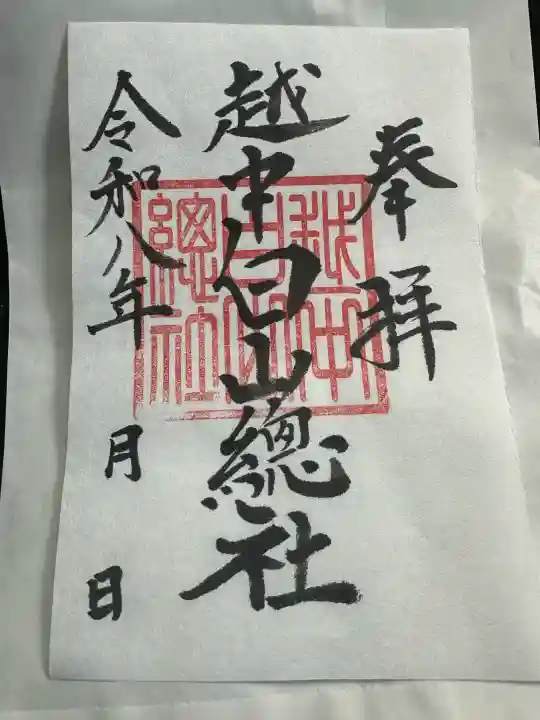 奉拝
越中白山總社
越中白山總社
令和八年 月 日